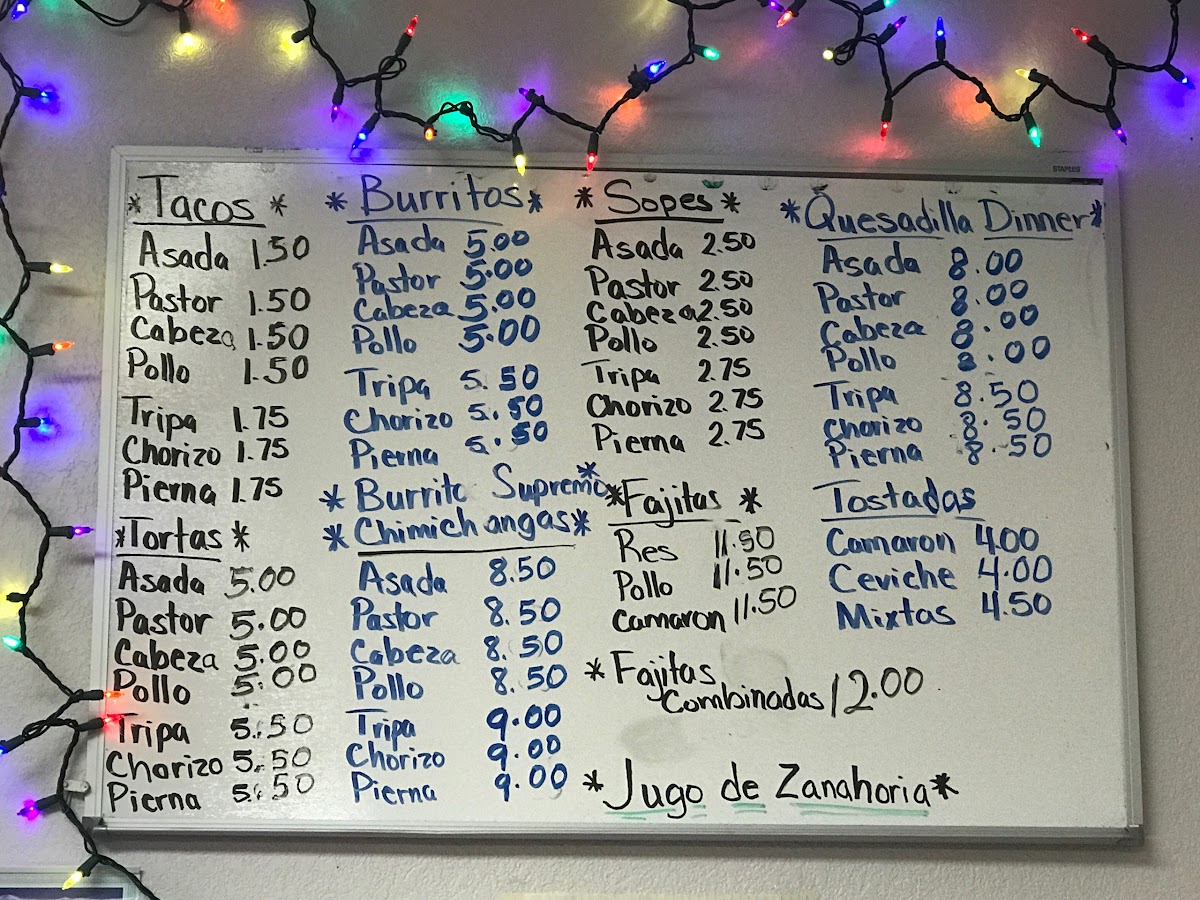 STAPLES
*Tacos*
Asada 1.50
Pastor 1.50
Cabeza 1.50
Pollo 1.50
Tripa 1.75
Chorizo 1.75
Pierna 1.75
*Tortas*
Asada 5.00
Pastor 5.00
Cabeza 5.00
Pollo 5.00
Tripa 5.50
Chorizo 5.50
Pierna 5.50
*Burritos*
Asada 5.00
Pastor 5.00
Cabeza 5.00
Pollo 5.00
Tripa 5.50
Chorizo 5.50
Pierna 5.50
*Burrito Supremo*
*Chimichangas*
Asada 8.50
Pastor 8.50
Cabeza 8.50
Pollo 8.50
Tripa 9.00
Chorizo 9.00
Pierna 9.00
*Sopes*
Asada 2.50
Pastor 2.50
Cabeza 2.50
Pollo 2.50
Tripa 2.75
Chorizo 2.75
Pierna 2.75
*Fajitas*
Res 11.50
Pollo 11.50
Camaron 11.50
*Fajitas
Combinadas 12.00
*Quesadilla Dinner*
Asada 8.00
Pastor 8.00
Cabeza 8.00
Pollo 8.00
Tripa 8.50
Chorizo 8.50
Pierna 8.50
Tostadas
Camaron 4.00
Ceviche 4.00
Mixtas 4.50
*Jugo de Zanahoria*